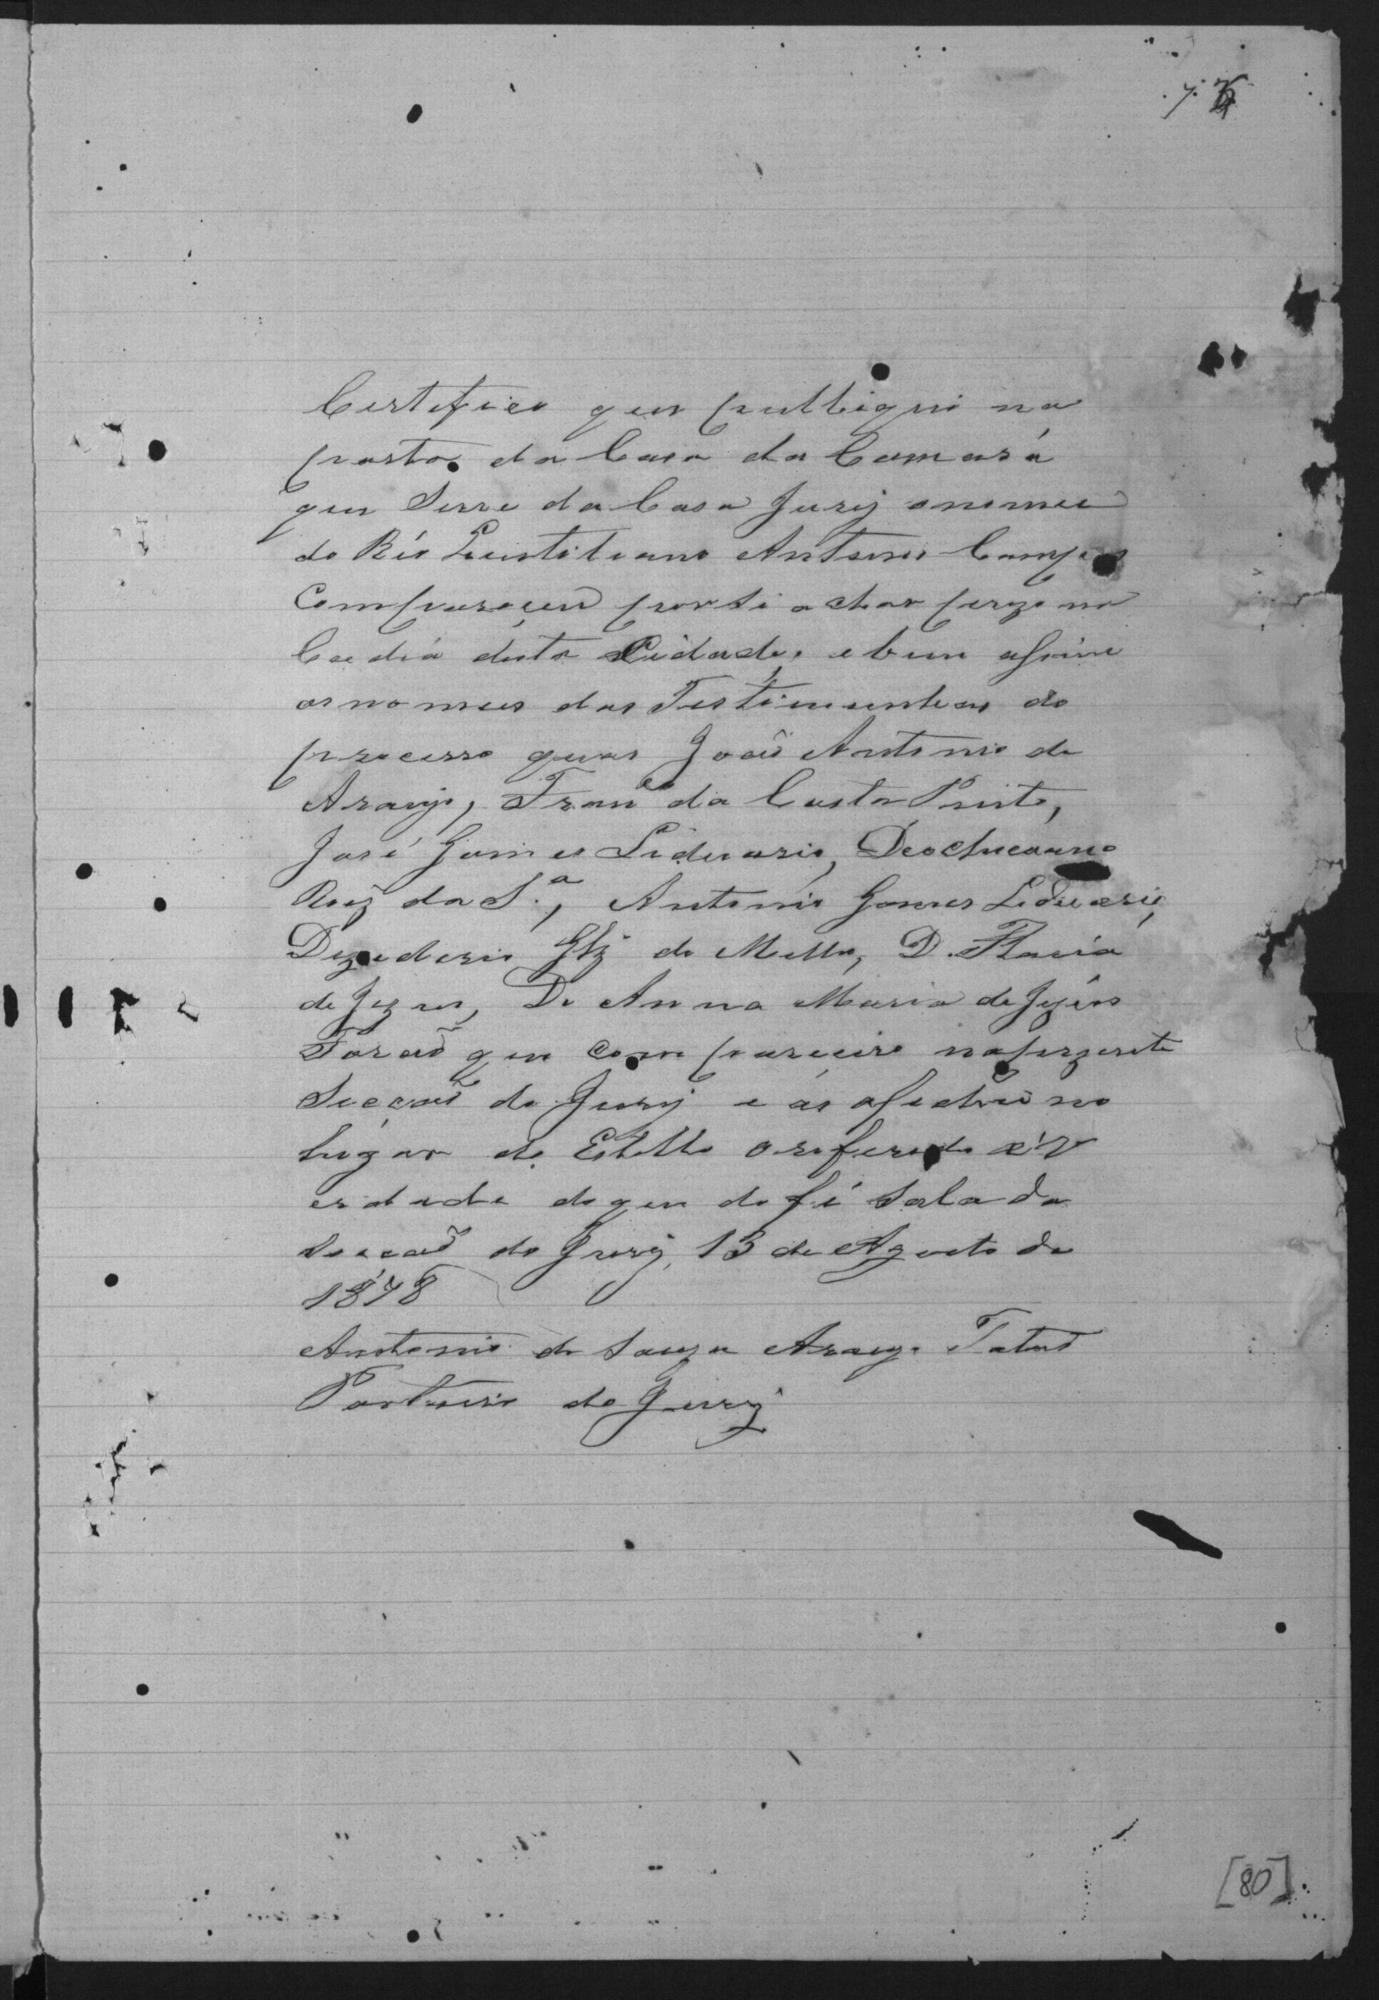 Certefico que pubbiquei na
porta da Casa da Camará
que Serve da Casa Jurÿ onomee
do Réo Antonio Campos
Comparaçeu porsi achar prezo na
Cadeá desta Cidade, e bem assim
os nomes das Testimunhas do
processo quaes João Antonio de
Araujo, Franco da Costa Pinto,
José Gomes Liduario,
Roiz da S.a, Antonio Gomes Liduario,
Dezederio Glz de Mello, D. Flavia
de Jezus, D. Anna Maria de Jezus
Forão que comparecere naprezente
Secção do Jurÿ e as afichei no
lugar do Estillo oreferido é v
erdade doque dofé Sala da
Secção do Jurÿ, 13 de Agosto de
1878
Antonio de Souza Araujo Tatú
Porteiro do Jurÿ
[80]